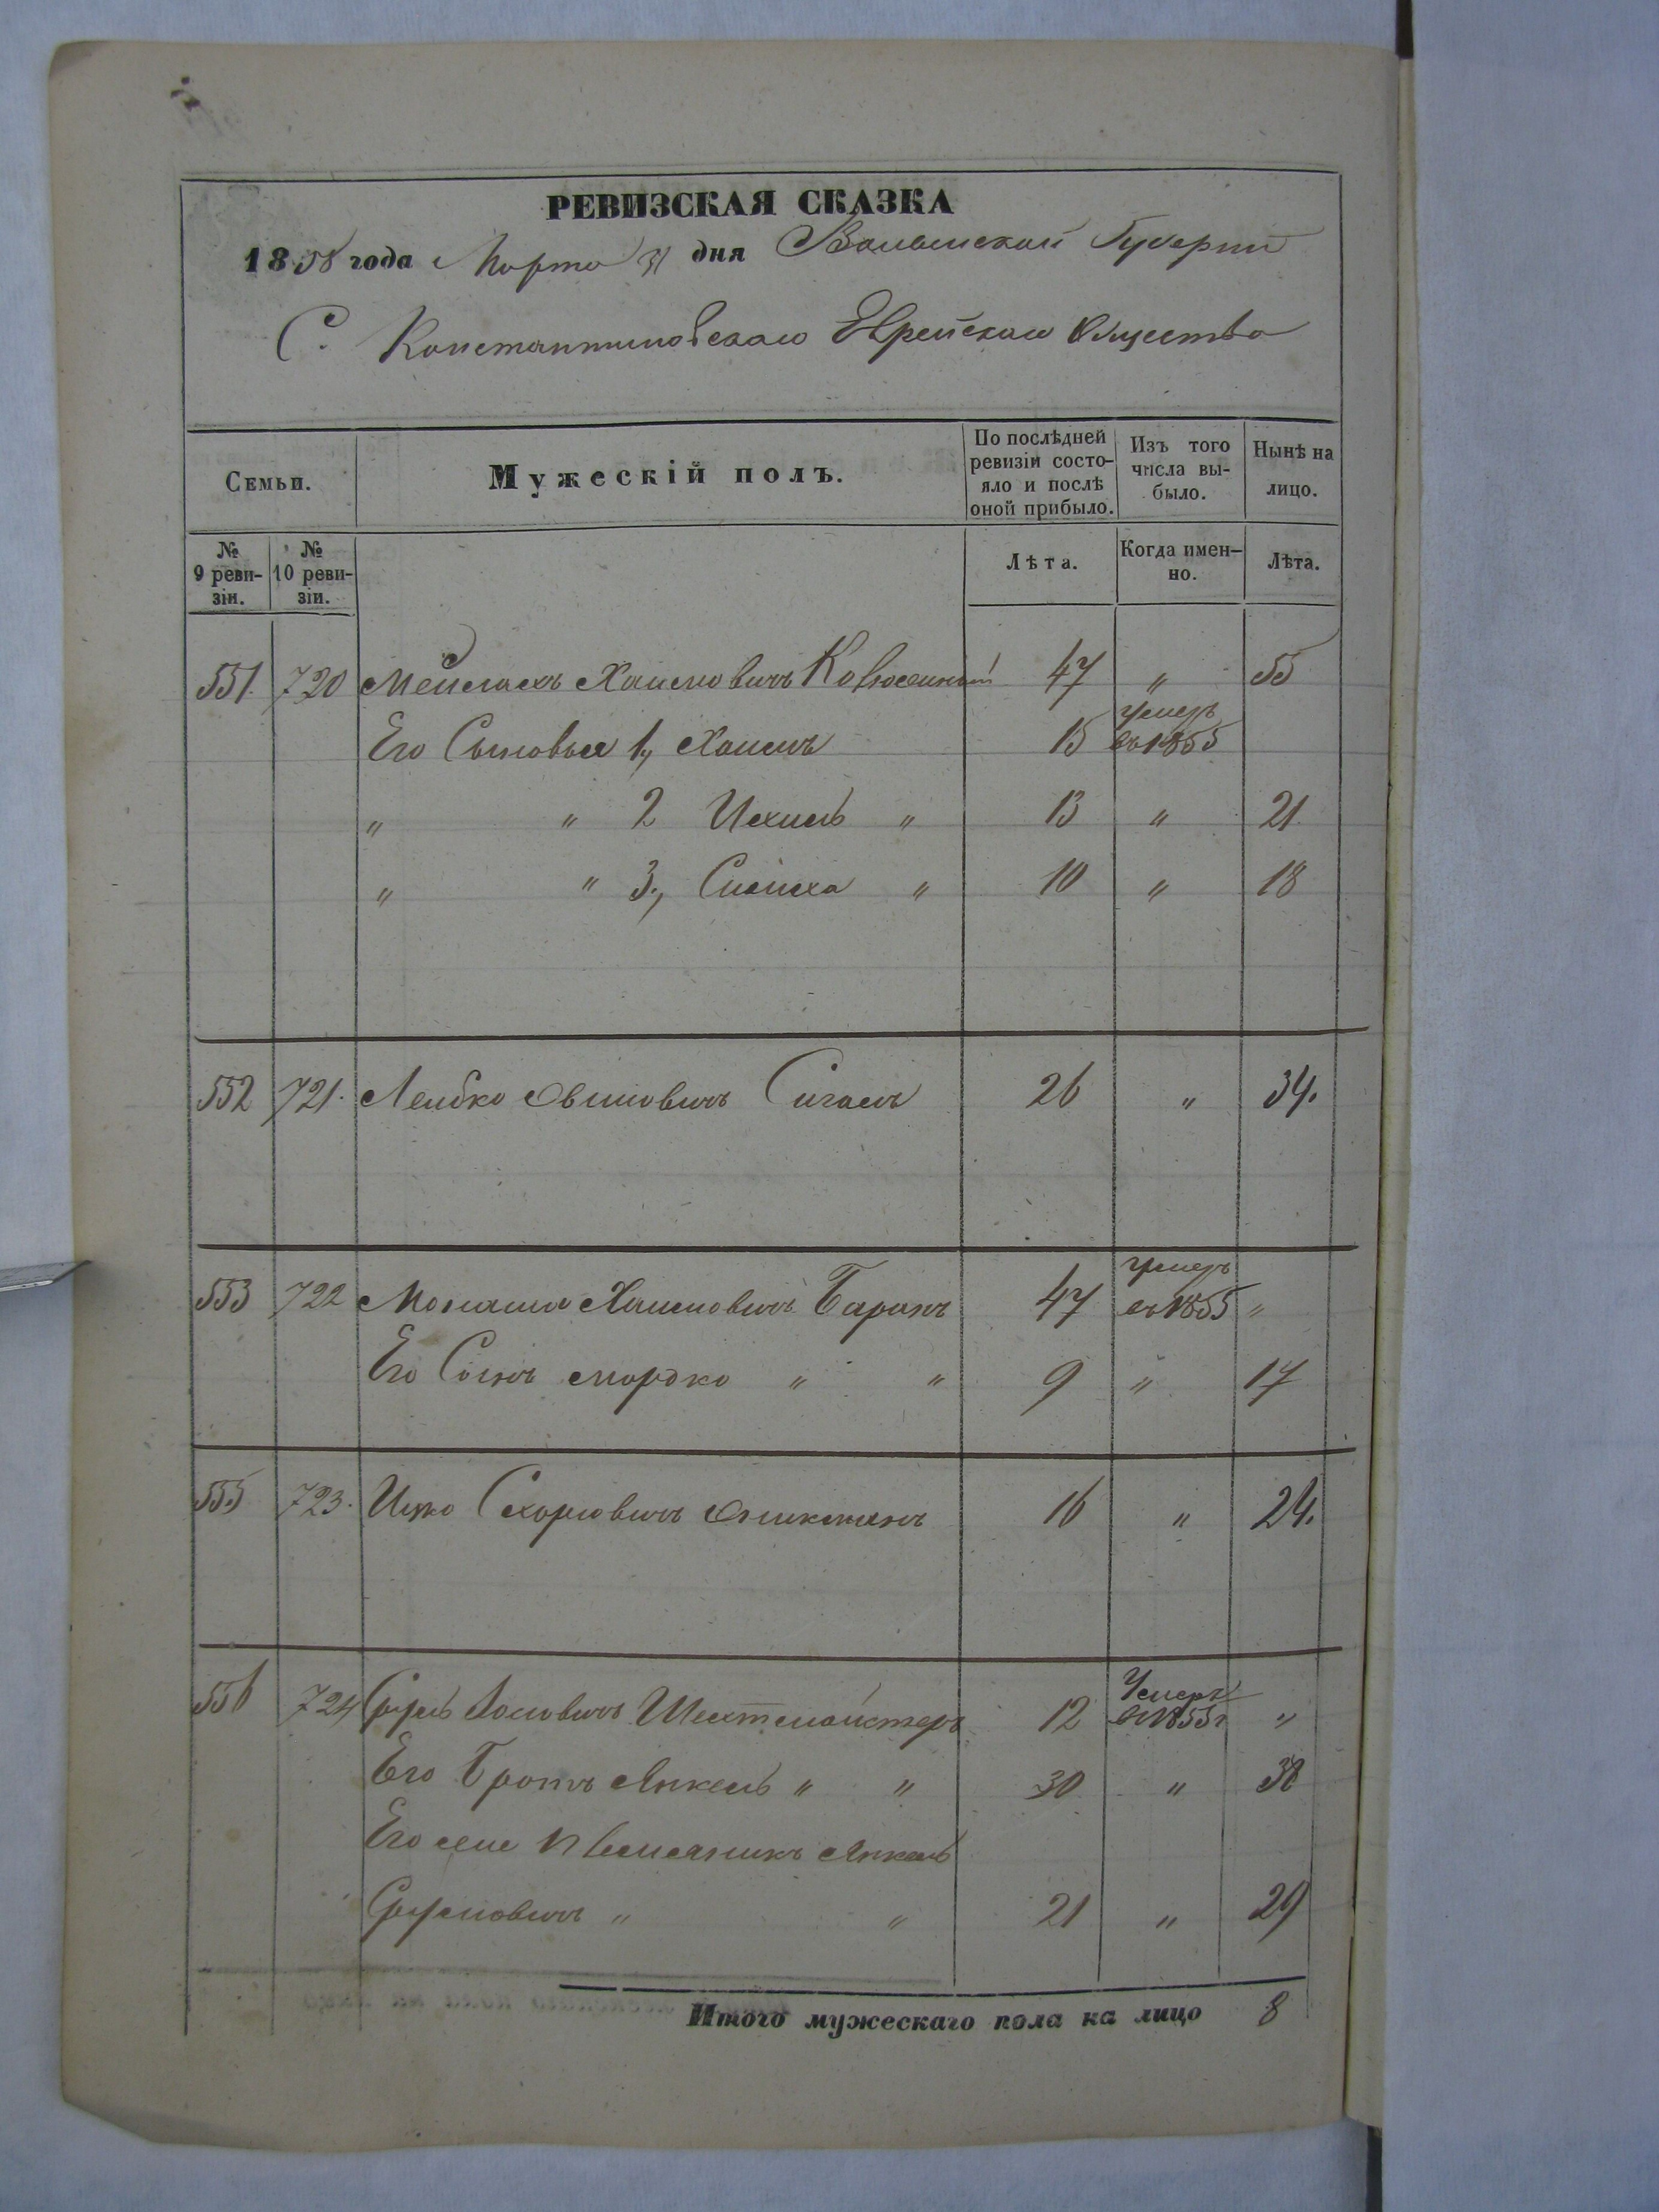 РЕВИЗСКАЯ СКАЗКА
1858 года Марта 31 дня Волынской Губернии
С. Константиновскаго Еврейскаго Общества
Семьи.
Мужескій полъ.
По послѣдней ревизіи состо-
яло и послѣ
оной прибыло.
Изъ того
числа вы-
было.
Нынѣ на
лицо.
№
9 реви-
зіи.
№
10 реви-
зіи.
Лѣта.
Когда имен-
но.
Лѣта.
551. 720 Мейлахъ Хаимовичъ 47 " 55
умеръ
Его Сыновья 1, Хаимъ 15 въ 1855
" " 2 Ихиль " 13 " 21
" " 3, Симха " 10 " 18
552 721. Лейбко Овшиовичъ Сигалъ 26 " 34.
умеръ
553 722 Монаша Хаимовичъ Баранъ 47 въ 1855 "
Его Сынъ Мордко " " 9 " 17
555 723. Ицко Схорновичъ 16 " 24.
Умеръ
556 724 Сруль Іосиовичъ Шехтмайстеръ 12 въ 1853г "
Его Братъ Янкель " " 30 " 38
Его еще Племяникъ Янкель
Сруліовичъ " " 21 " 29
Итого мужескаго пола на лицо 8